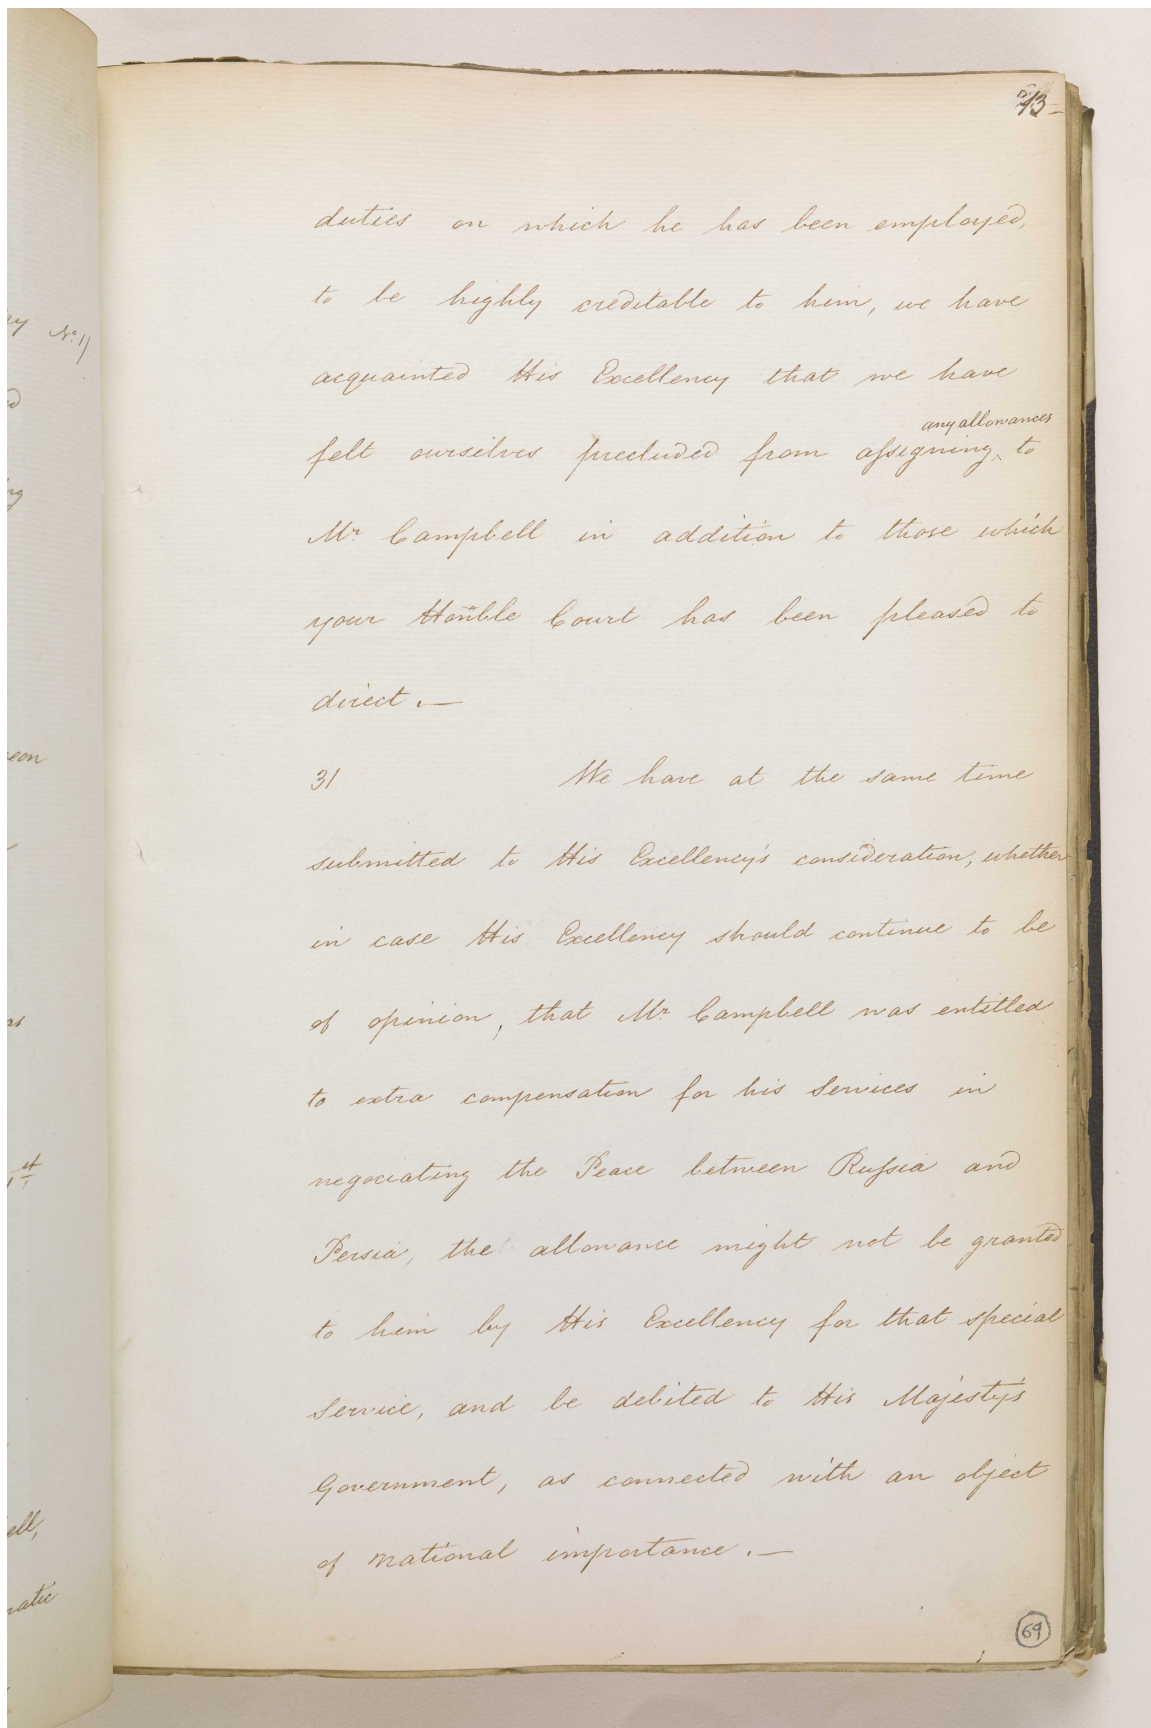 duties on which he has been employed,
to be highly creditable to him, we have
acquainted His Excellency that we have
any allowances
felt ourselves precluded from assigning ^ to
Mr Campbell in addition to those which
your Honble Court has been pleased to
direct. —
31 We have at the same time
submitted to His Excellency's consideration, whether
in case His Excellency should continue to be
of opinion, that Mr Campbell was entitled
to extra compensation for his Services in
negociating the Peace between Russia and
Persia, the allowance might not be granted
to him by His Excellency for that special
Service, and be debited to His Majesty's
Government, as connected with an object
of national importance. —
69
No. 11
eon
ell,